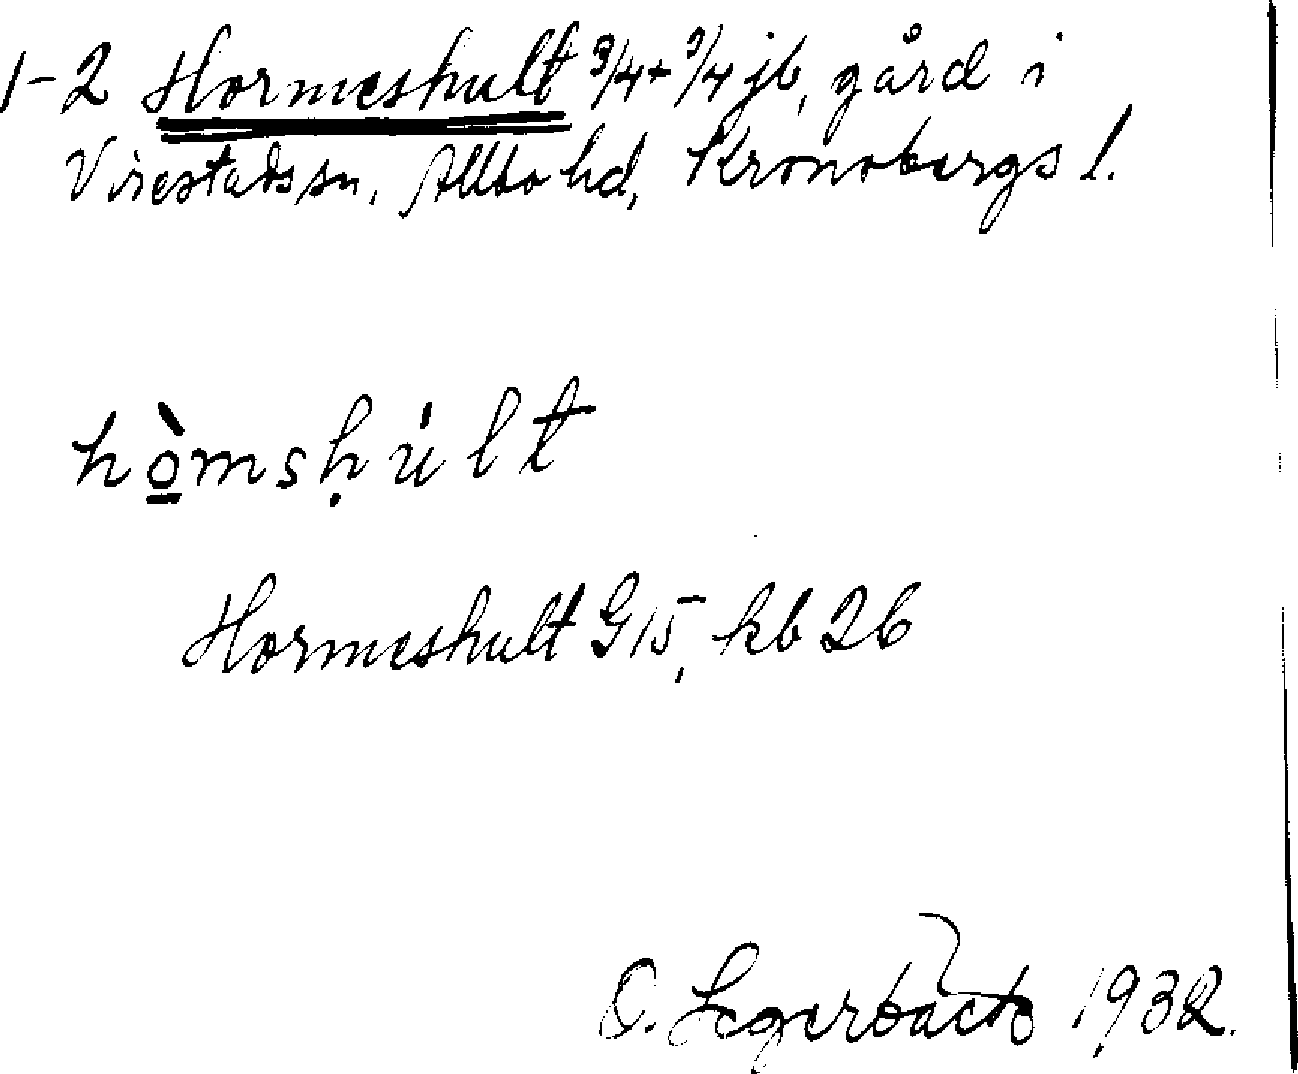 1-2 Hormeshult 3/4+3/4 jb, gård i
Virestads sn, Allbo hd, Kronobergs l.
hò̲msḥúlt
Hormeshult G15, kb 26
O. 1932.